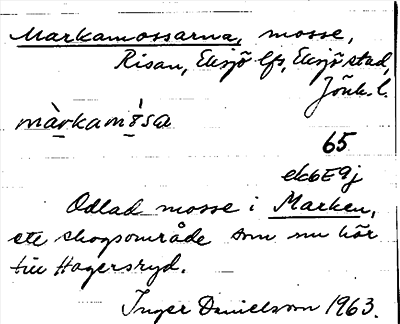 Markamossarna, mosse,
Risan, Eksjö lfs, Eksjö stad,
Jönk. l.
màrkamósa
65
ek6E9j
Odlad mosse i Marken,
ett skogsområde som nu hör
till Hagersryd.
Inger Danielsson 1963.